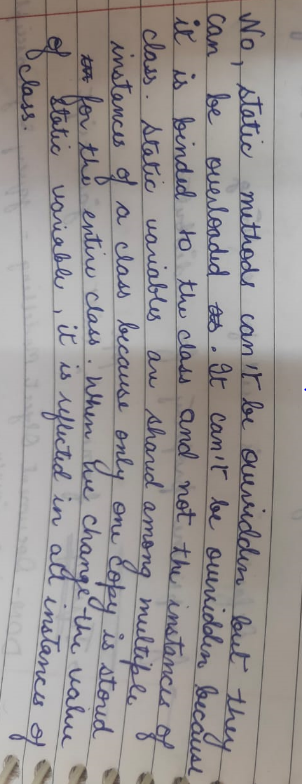 No, static methods can't be overridden but they
can be overloaded. It can't be overridden because
it is binded to the class and not the instances of
class. Static variables are shared among multiple
instances of a class because only one copy is stored
for the entire class. When we change the value
of static variable, it is reflected in all instances of
class.